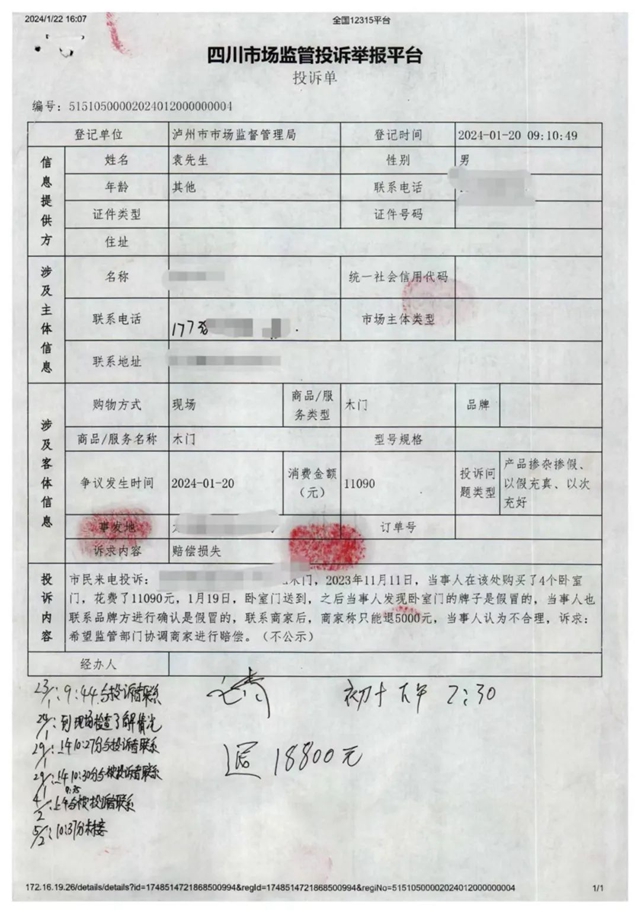 2024/1/22 16:07 全国12315平台
四川市场监管投诉举报平台
投诉单
编号：51510500002024012000000004
登记单位 泸州市市场监督管理局 登记时间 2024-01-20 09:10:49
信息提供方
姓名 袁先生 性别 男
年龄 其他 联系电话
证件类型 证件号码
住址
涉及主体信息
名称 统一社会信用代码
联系电话 177 市场主体类型
联系地址
涉及客体信息
购物方式 现场 商品/服务类型 木门 品牌
商品/服务名称 木门 型号规格
争议发生时间 2024-01-20 消费金额（元） 11090 投诉问题类型 产品掺杂掺假、以假充真、以次充好
事发地 订单号
诉求内容 赔偿损失
投诉内容
市民来电投诉： 木门，2023年11月11日，当事人在该处购买了4个卧室
门，花费了11090元，1月19日，卧室门送到，之后当事人发现卧室门的牌子是假冒的，当事人也
联系品牌方进行确认是假冒的，联系商家后，商家称只能退5000元，当事人认为不合理，诉求：
希望监管部门协调商家进行赔偿。（不公示）
经办人
23/1：9:44与投诉者联系 初十下午 2:30
29/1：上午10:27分与投诉者联系
退 18800元
29/1：上午10:30分与被投诉者联系
4/2：上午与被投诉者联系
5/2：10:37分未接
172.16.19.26/details/details?id=1748514721868500994&regId=1748514721868500994&regiNo=51510500002024012000000004 1/1